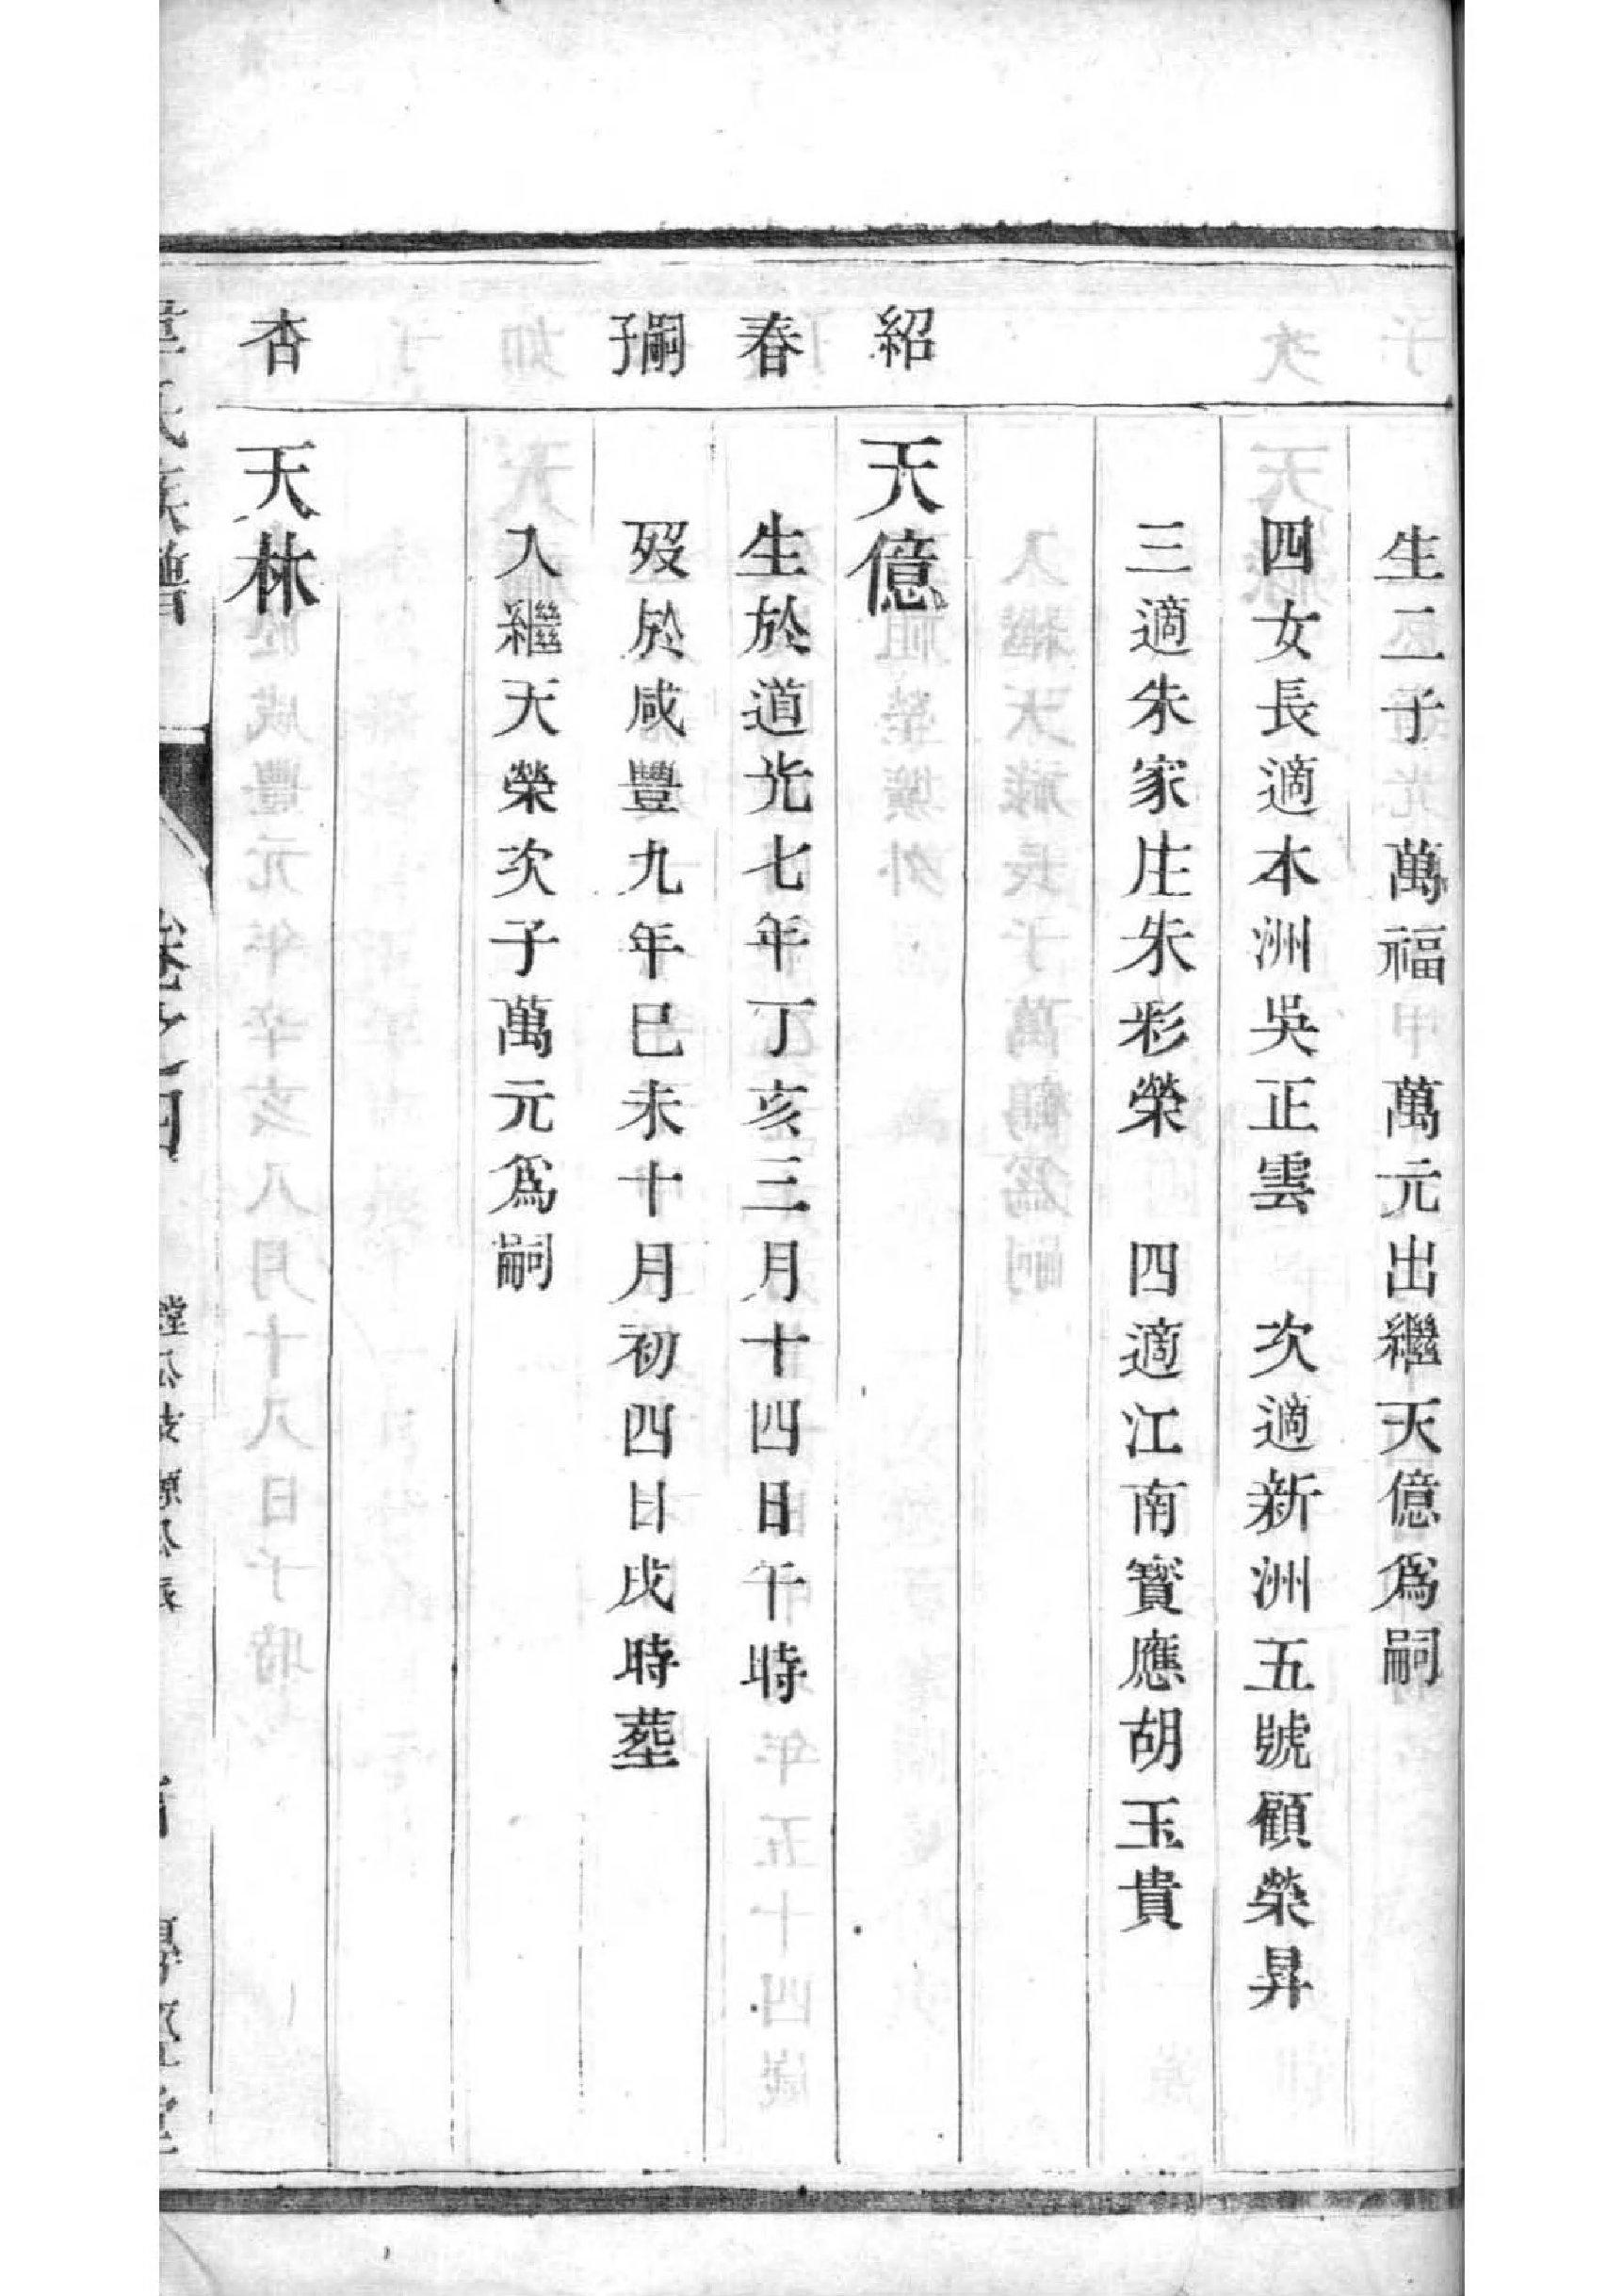 生二子　萬福　萬元出繼天億爲嗣
四女長適本洲吳正雲　次適新洲五號顧榮昇
三適朱家庄朱彩榮　四適江南寳應胡玉貴
紹
天億
春
生於道光七年丁亥三月十四日午時
嗣子
歿於咸豐九年巳未十月初四日戌時葬
入繼天榮次子萬元爲嗣
杏
天林
氏族譜
卷之四